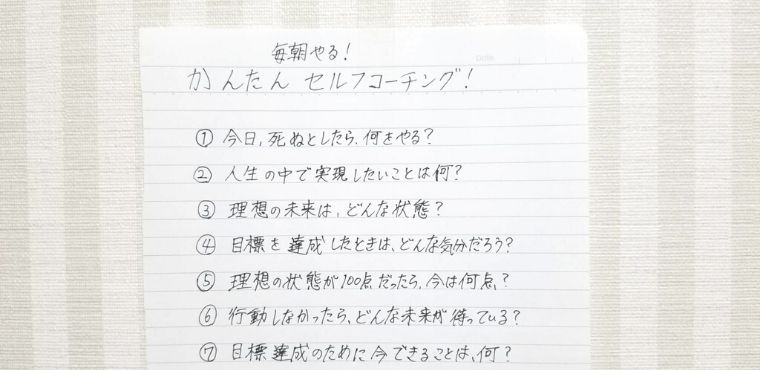 Date
毎朝やる!
かんたん セルフコーチング!
① 今日、死ぬとしたら、何をやる?
② 人生の中で実現したいことは何?
③ 理想の未来は、どんな状態?
④ 目標を達成したときは、どんな気分だろう?
⑤ 理想の状態が100点だったら、今は何点?
⑥ 行動しなかったら、どんな未来が待っている?
⑦ 目標達成のために今できることは、何?